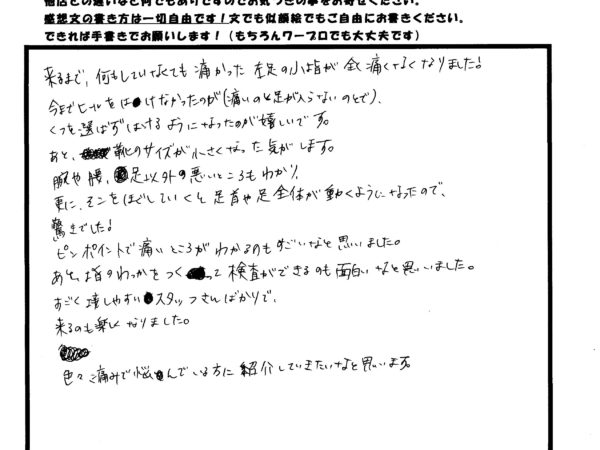 他店との違いなど何でもありですのでお気づきの事をお寄せください。
感想文の書き方は一切自由です！文でも似顔絵でもご自由にお書きください。
できれば手書きでお願いします！（もちろんワープロでも大丈夫です）
来るまで、何もしていなくても痛かった左足の小指が全く痛くなくなりました！
今までヒールをはけなかったのが（痛いのと足が入らないのとで）、
くつを選ばずはけるようになったのが嬉しいです。
あと、靴のサイズが小さくなった気がします。
腕や腰、足以外の悪いところもわかり
更に、そこをほぐしていくと足首や足全体が動くようになったので、
驚きでした！
ピンポイントで痛いところがわかるのもすごいなと思いました。
あと、指のわっかをつくって検査ができるのも面白いなと思いました。
すごく話しやすいスタッフさんばかりで、
来るのも楽しくなりました。
色々痛みで悩んでいる方に紹介していきたいなと思います。